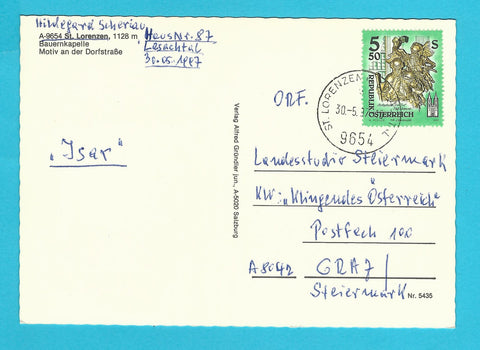 Hildegard Scheriau
A-9654 St. Lorenzen, 1128 m
Bauernkapelle
Motiv an der Dorfstraße
Haus Nr. 87
Lesachtal
30.05.1997
"Isar"
Verlag Alfred Gründler jun., A-5020 Salzburg
5 50 S
REPUBLIK
ÖSTERREICH
ST. LORENZEN
30.-5.
9654
ORF.
Landesstudio Steiermark
KW: "Klingendes Österreich"
Postfach 100
A 8042 GRAZ/
Steiermark
Nr. 5435